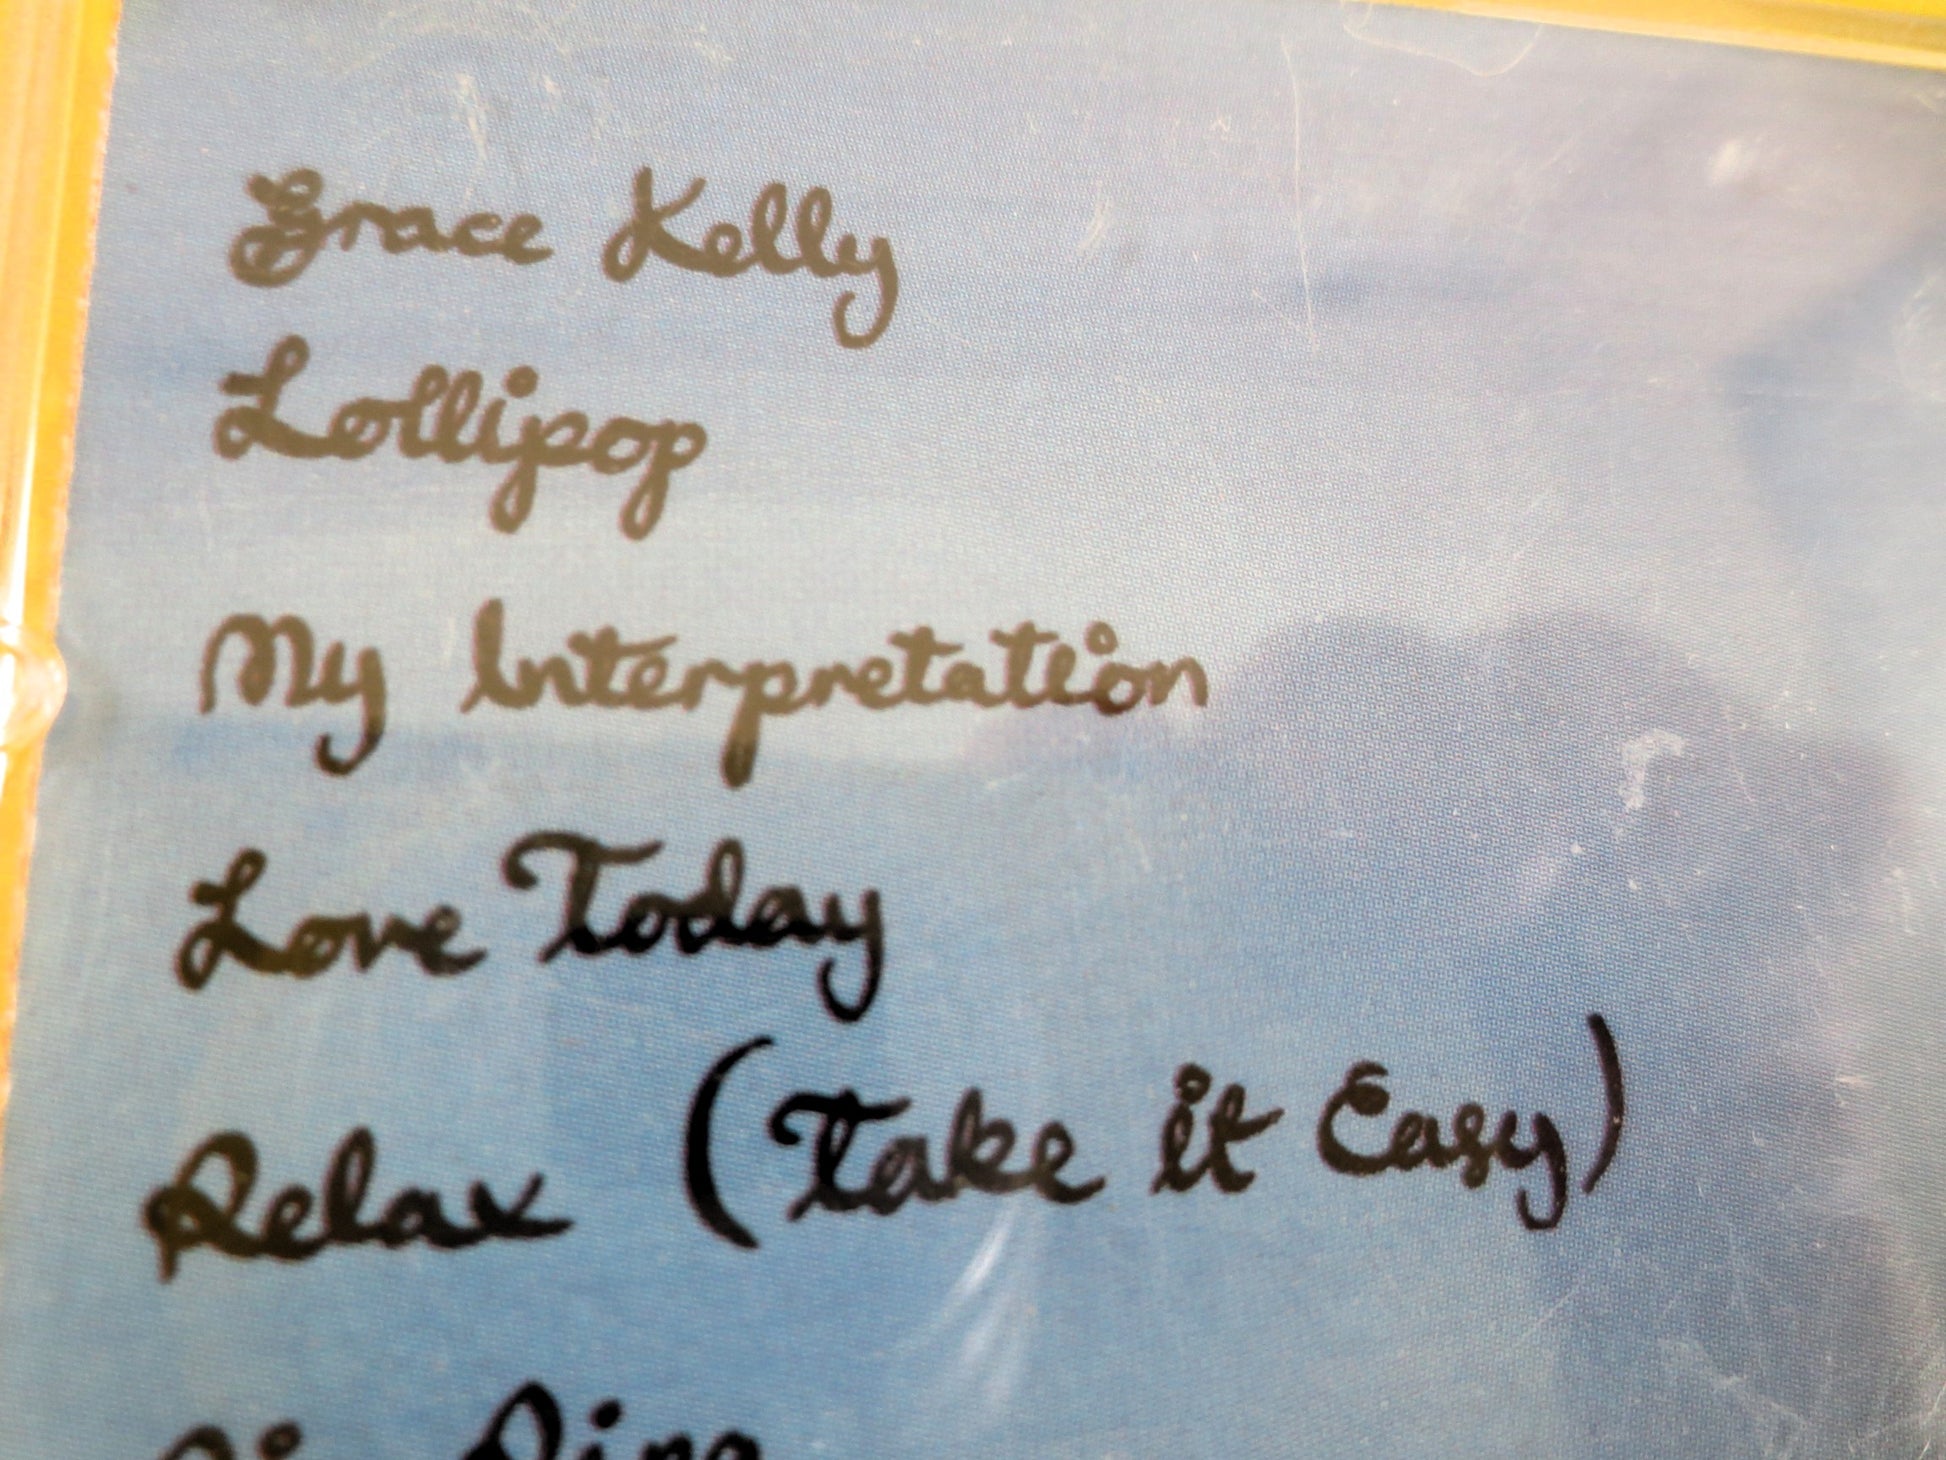 Grace Kelly
Lollipop
My Interpretation
Love Today
Relax (Take it Easy)